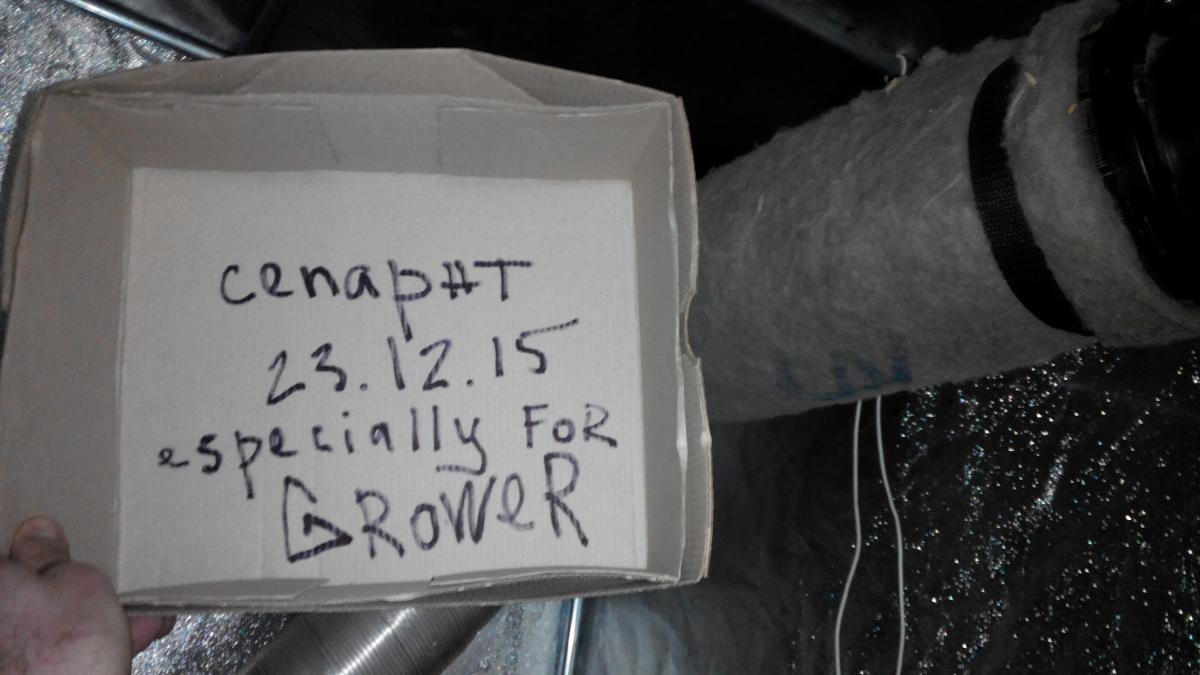 cenapHT
23.12.15
especially FoR
GRoWeR